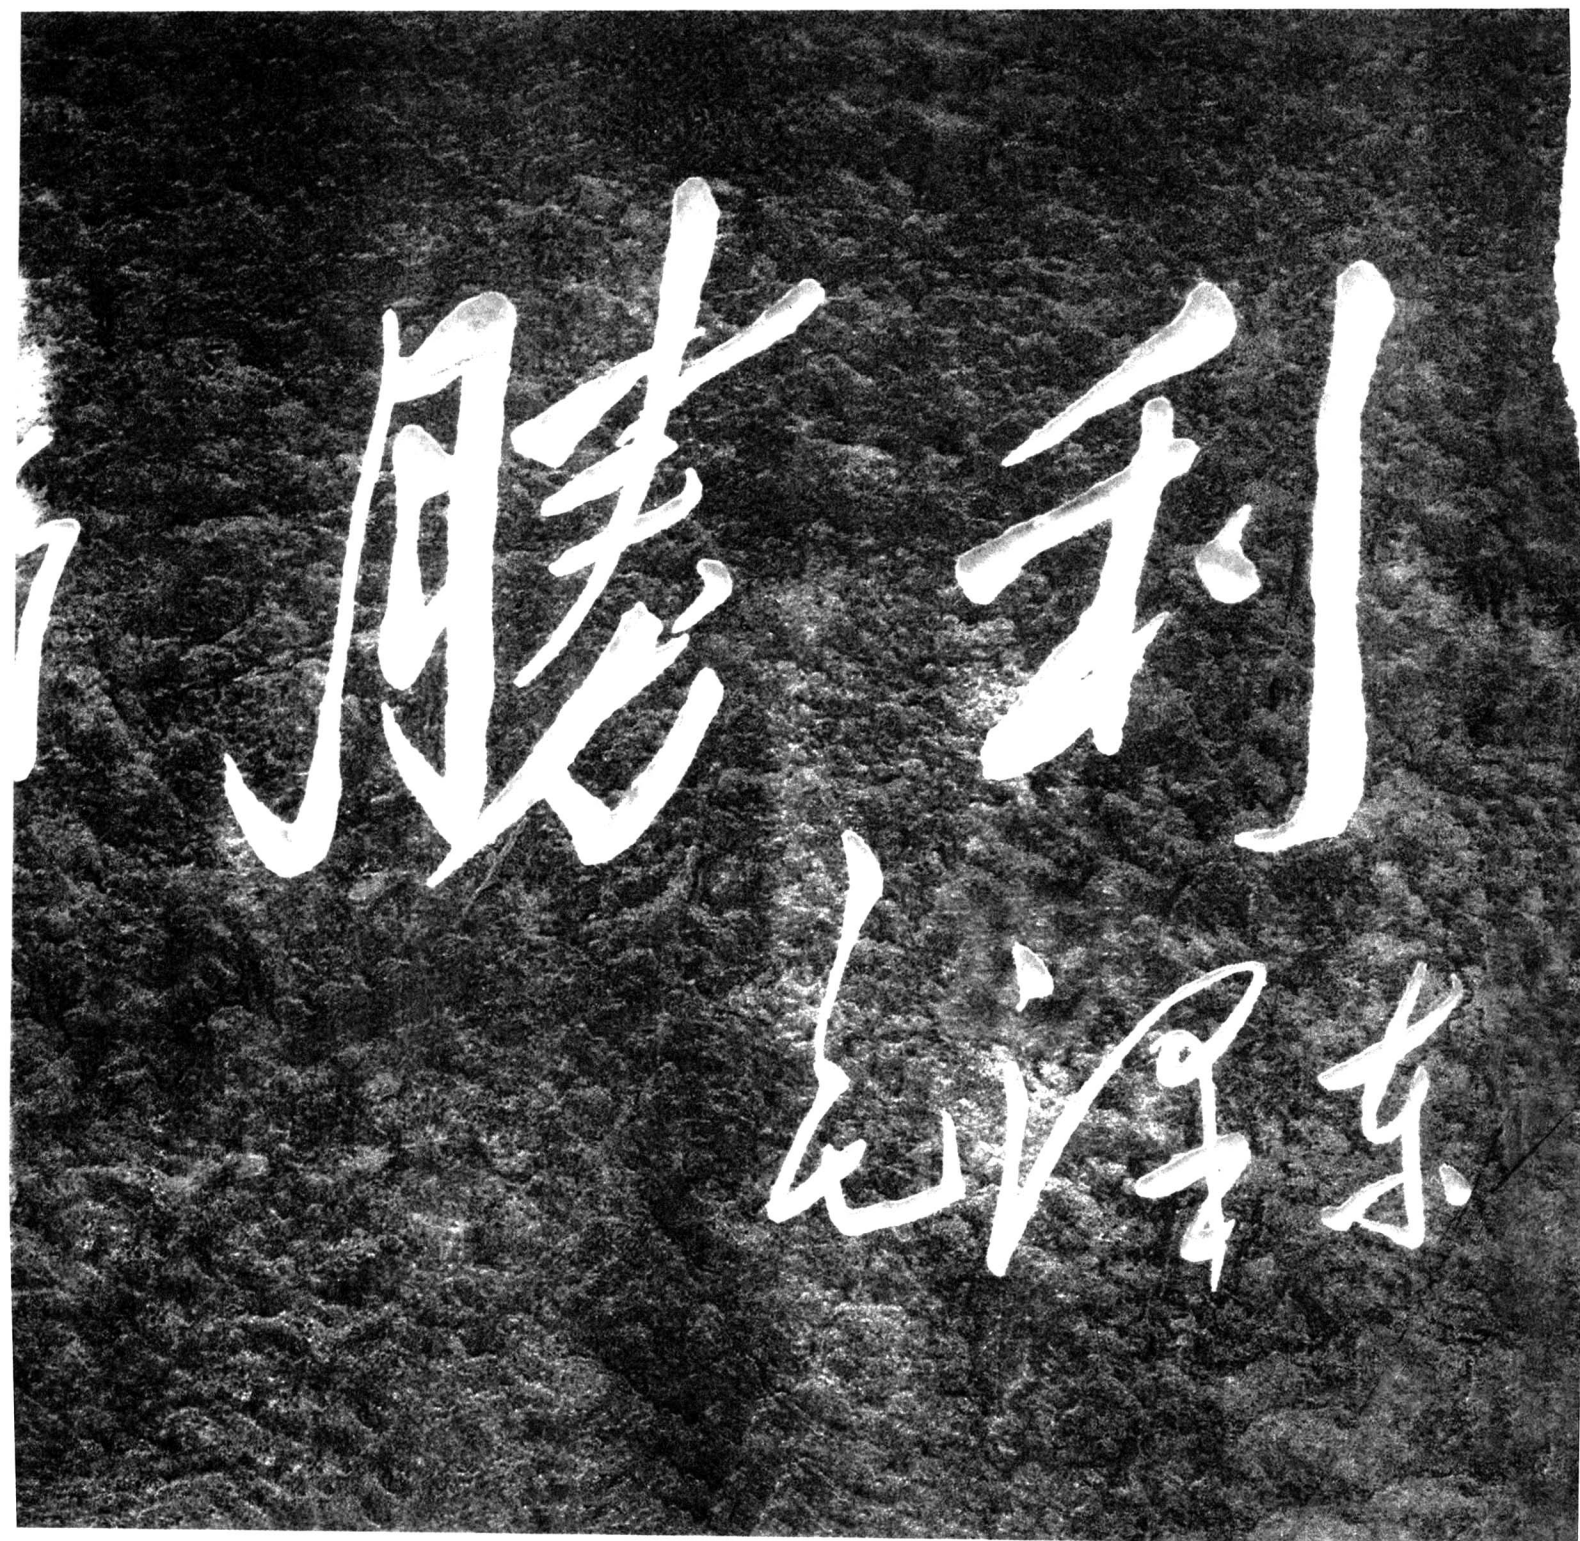 勝利
毛泽东